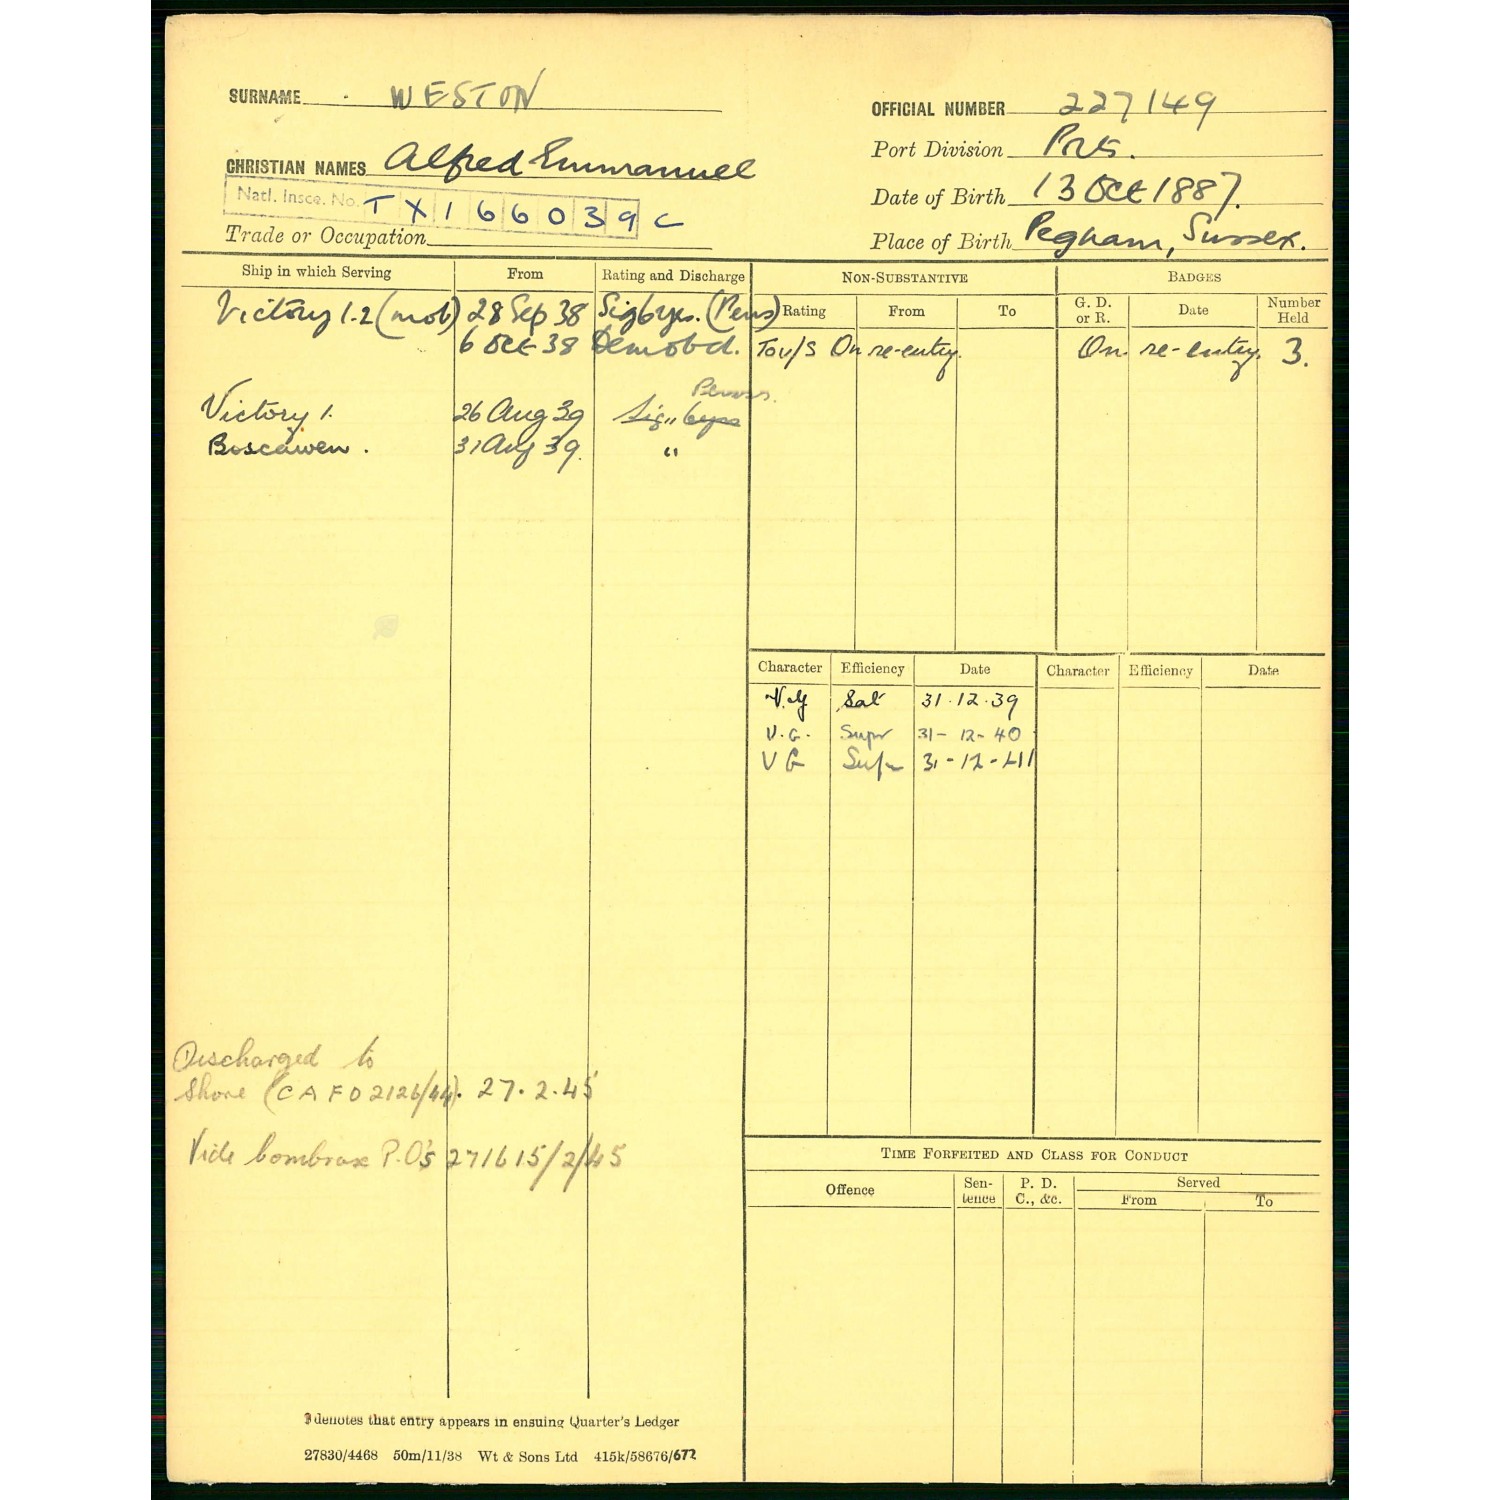 SURNAME WESTON
OFFICIAL NUMBER 227149
CHRISTIAN NAMES Alfred Emmanuel
Port Division
Natl. Insce. No. TX166039C
Date of Birth 13 Oct 1887.
Trade or Occupation
Place of Birth Pegham, Sussex.
Ship in which Serving From Rating and Discharge
Victory 1-2 (mob) 28 Sep 38 (Pens)
6 Oct 38 Demobd.
Victory 1. 26 Aug 39 Sig.
Boscawen. 31 Aug 39 "
NON-SUBSTANTIVE
Rating From To
On re-entry.
BADGES
G. D. or R. Date Number Held
On re-entry. 3.
Character Efficiency Date Character Efficiency Date
V.G Sat 31.12.39
V.G. Supr 31-12-40
V G Supr 31-12-41
Discharged to
Shore (CAFO 2126/44). 27.2.45
Vide P.O's 271615/2/45
TIME FORFEITED AND CLASS FOR CONDUCT
Offence Sentence P. D. C., &c. Served
From To
denotes that entry appears in ensuing Quarter's Ledger
27830/4468 50m/11/38 Wt & Sons Ltd 415k/58676/672